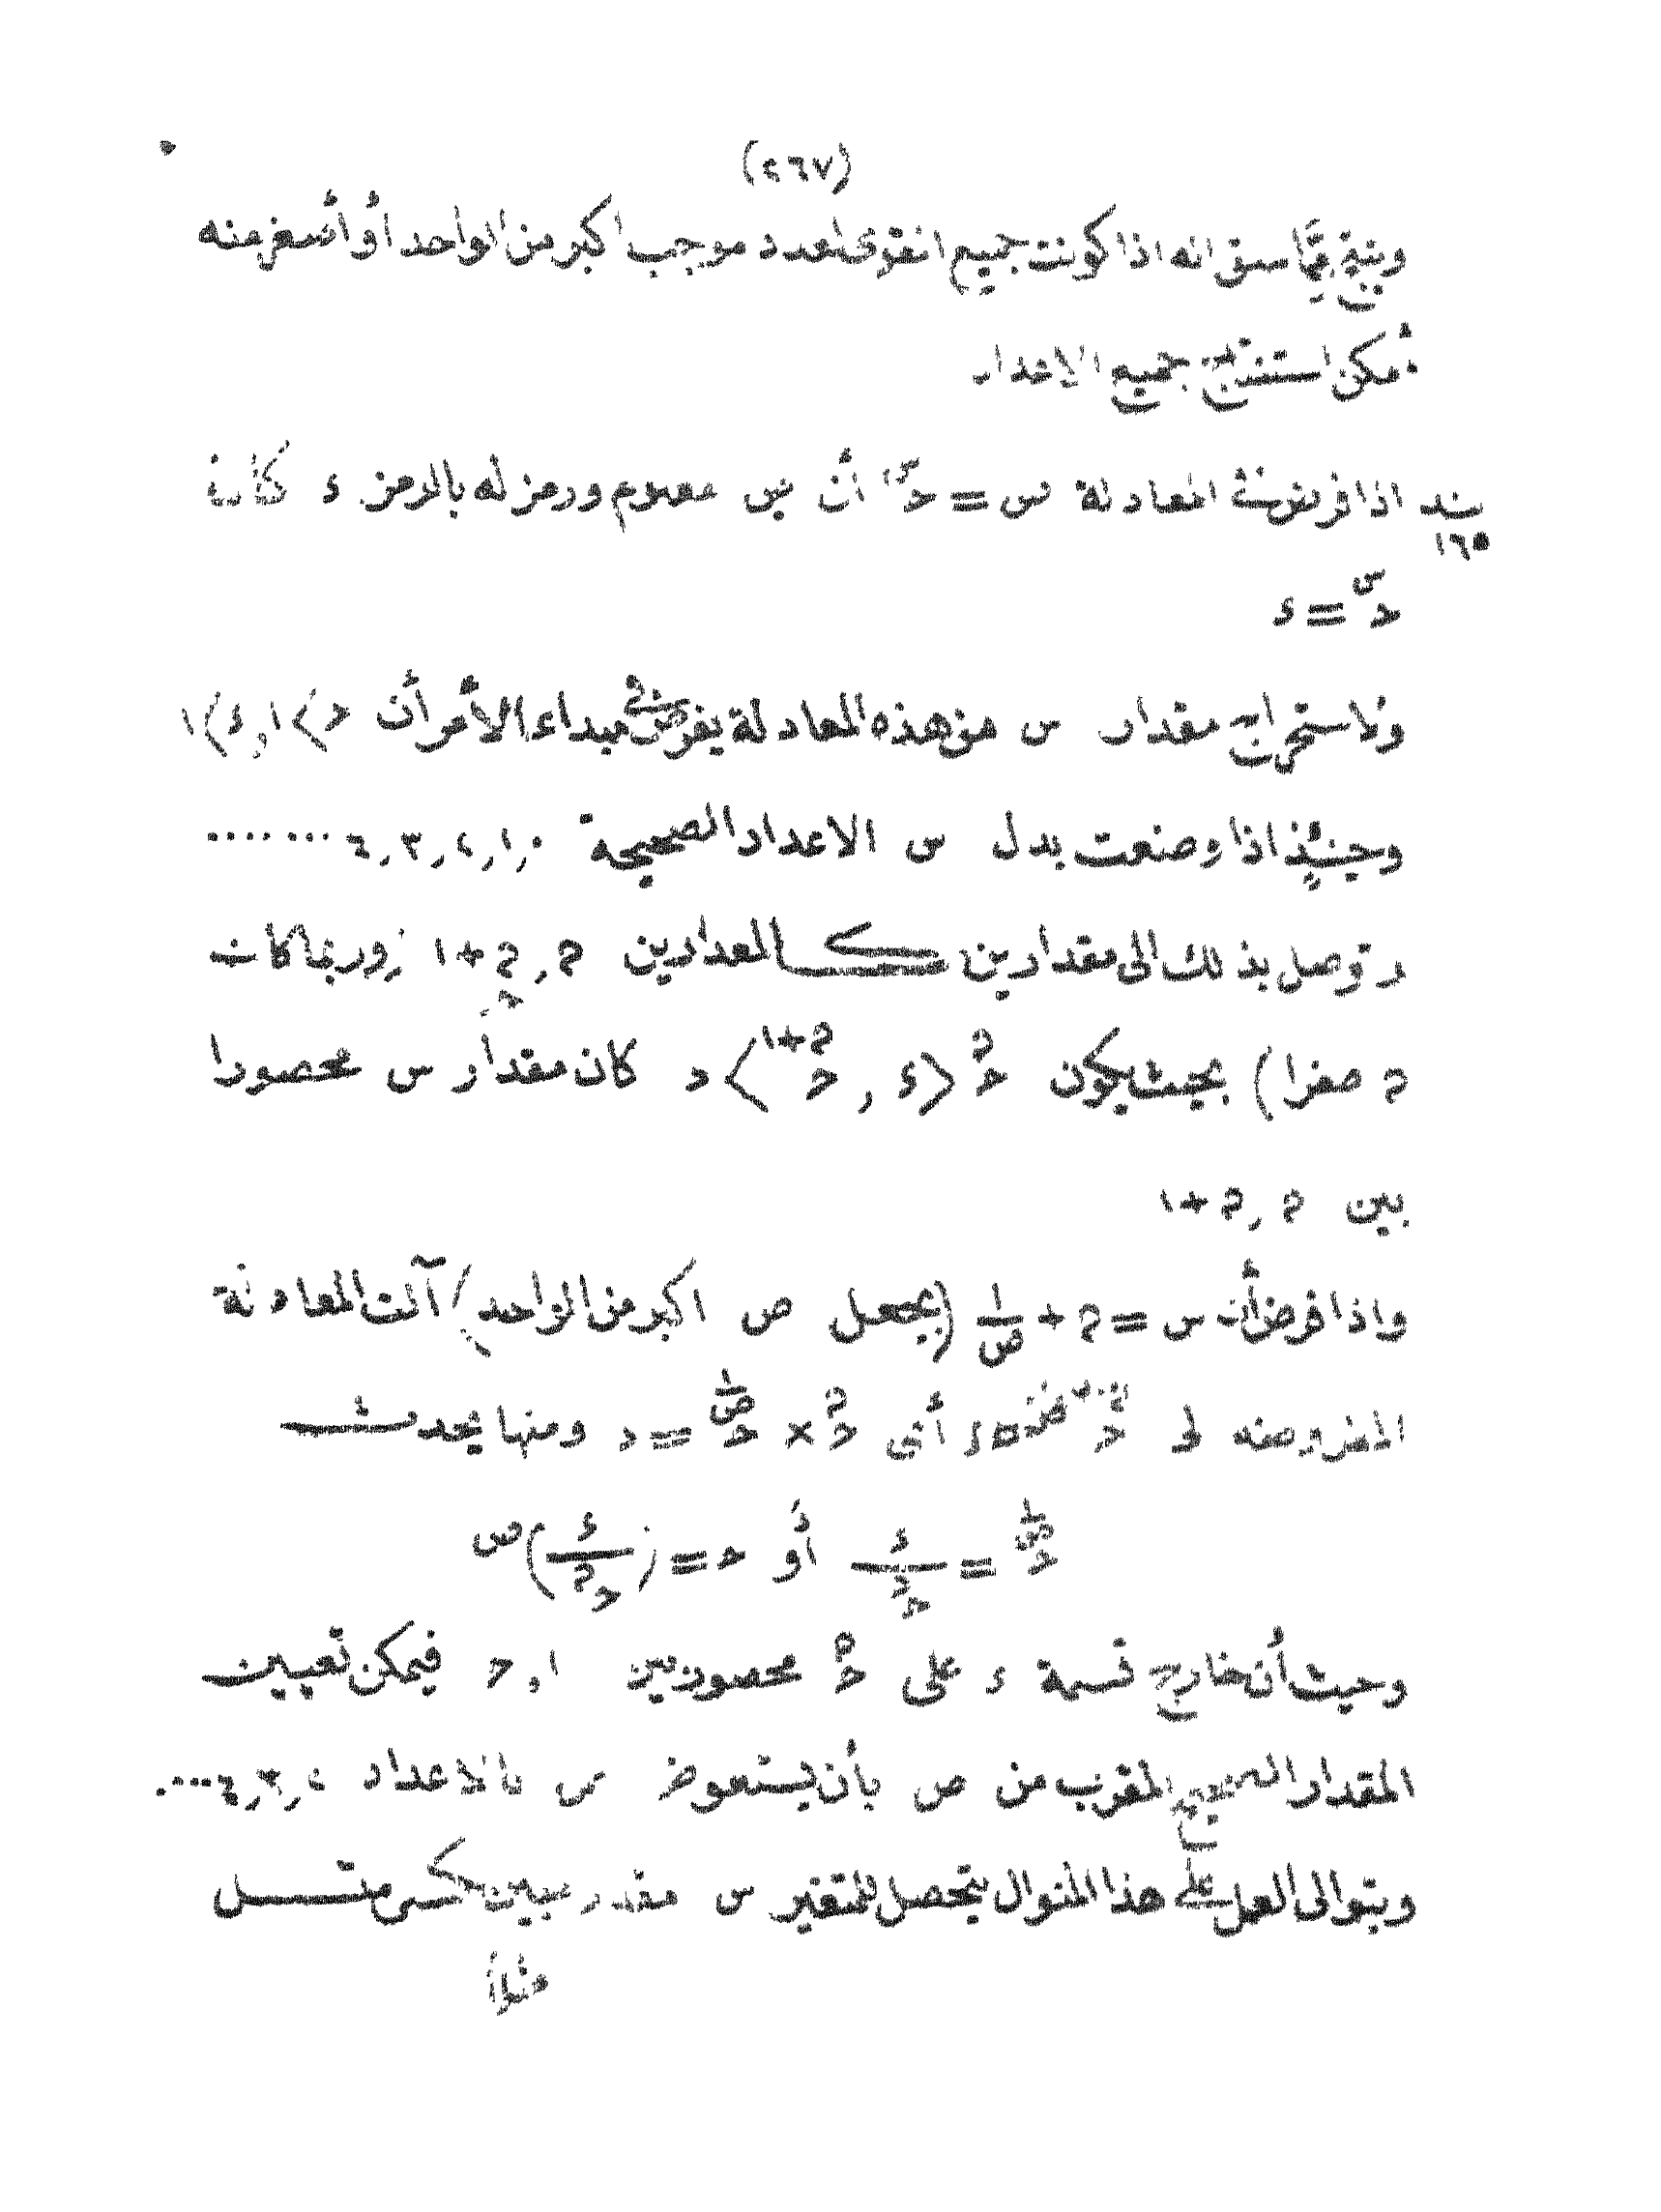 (٢٦٧)
وينتج مما سبق انه اذا كونت جميع القوى لعدد موجب اكبر من الواحد أو أصغر منه
أمكن استنتاج جميع الاعداد
بند ١٦٥ اذا فرض فى المعادلة ص = حـ^س أن ص معلوم ورمز له بالرمز ء كان
حـ^س = ء
ولاستخراج مقدار س من هذه المعادلة يفرض فى مبداء الأمر أن حـ > ١ , ء > ١
وحينئذ اذا وضعت بدل س الاعداد الصحيحة ٠ , ١ , ٢ , ٣ , ٤ .......
توصل بذلك الى مقدارين كالمعدادين م , م + ١ (وربما كان
م صفرا) بحيث يكون حـ^م < ء , حـ^(م+١) > ء كان مقدار س محصورا
بين م , م + ١
واذا فرض أن س = م + ١/ص (بجعل ص اكبر من الواحد) آلت المعادلة
المفروضه لى حـ^(م+١/ص) = ء أعنى حـ^م × حـ^(١/ص) = ء ومنها يحدث
حـ^(١/ص) = ء/حـ^م أو حـ = (ء/حـ^م)^ص
وحيث أن خارج قسمة ء على حـ^م محصور بين ١ , حـ فيمكن تعيين
المقدار الصحيح المقرب من ص بأن يستعوض ص بالاعداد ٢ , ٣ , ٤ ....
وبتوالى العمل على هذا المنوال يتحصل للمتغير س مقدر مبين بكسر متسل
مثلاً